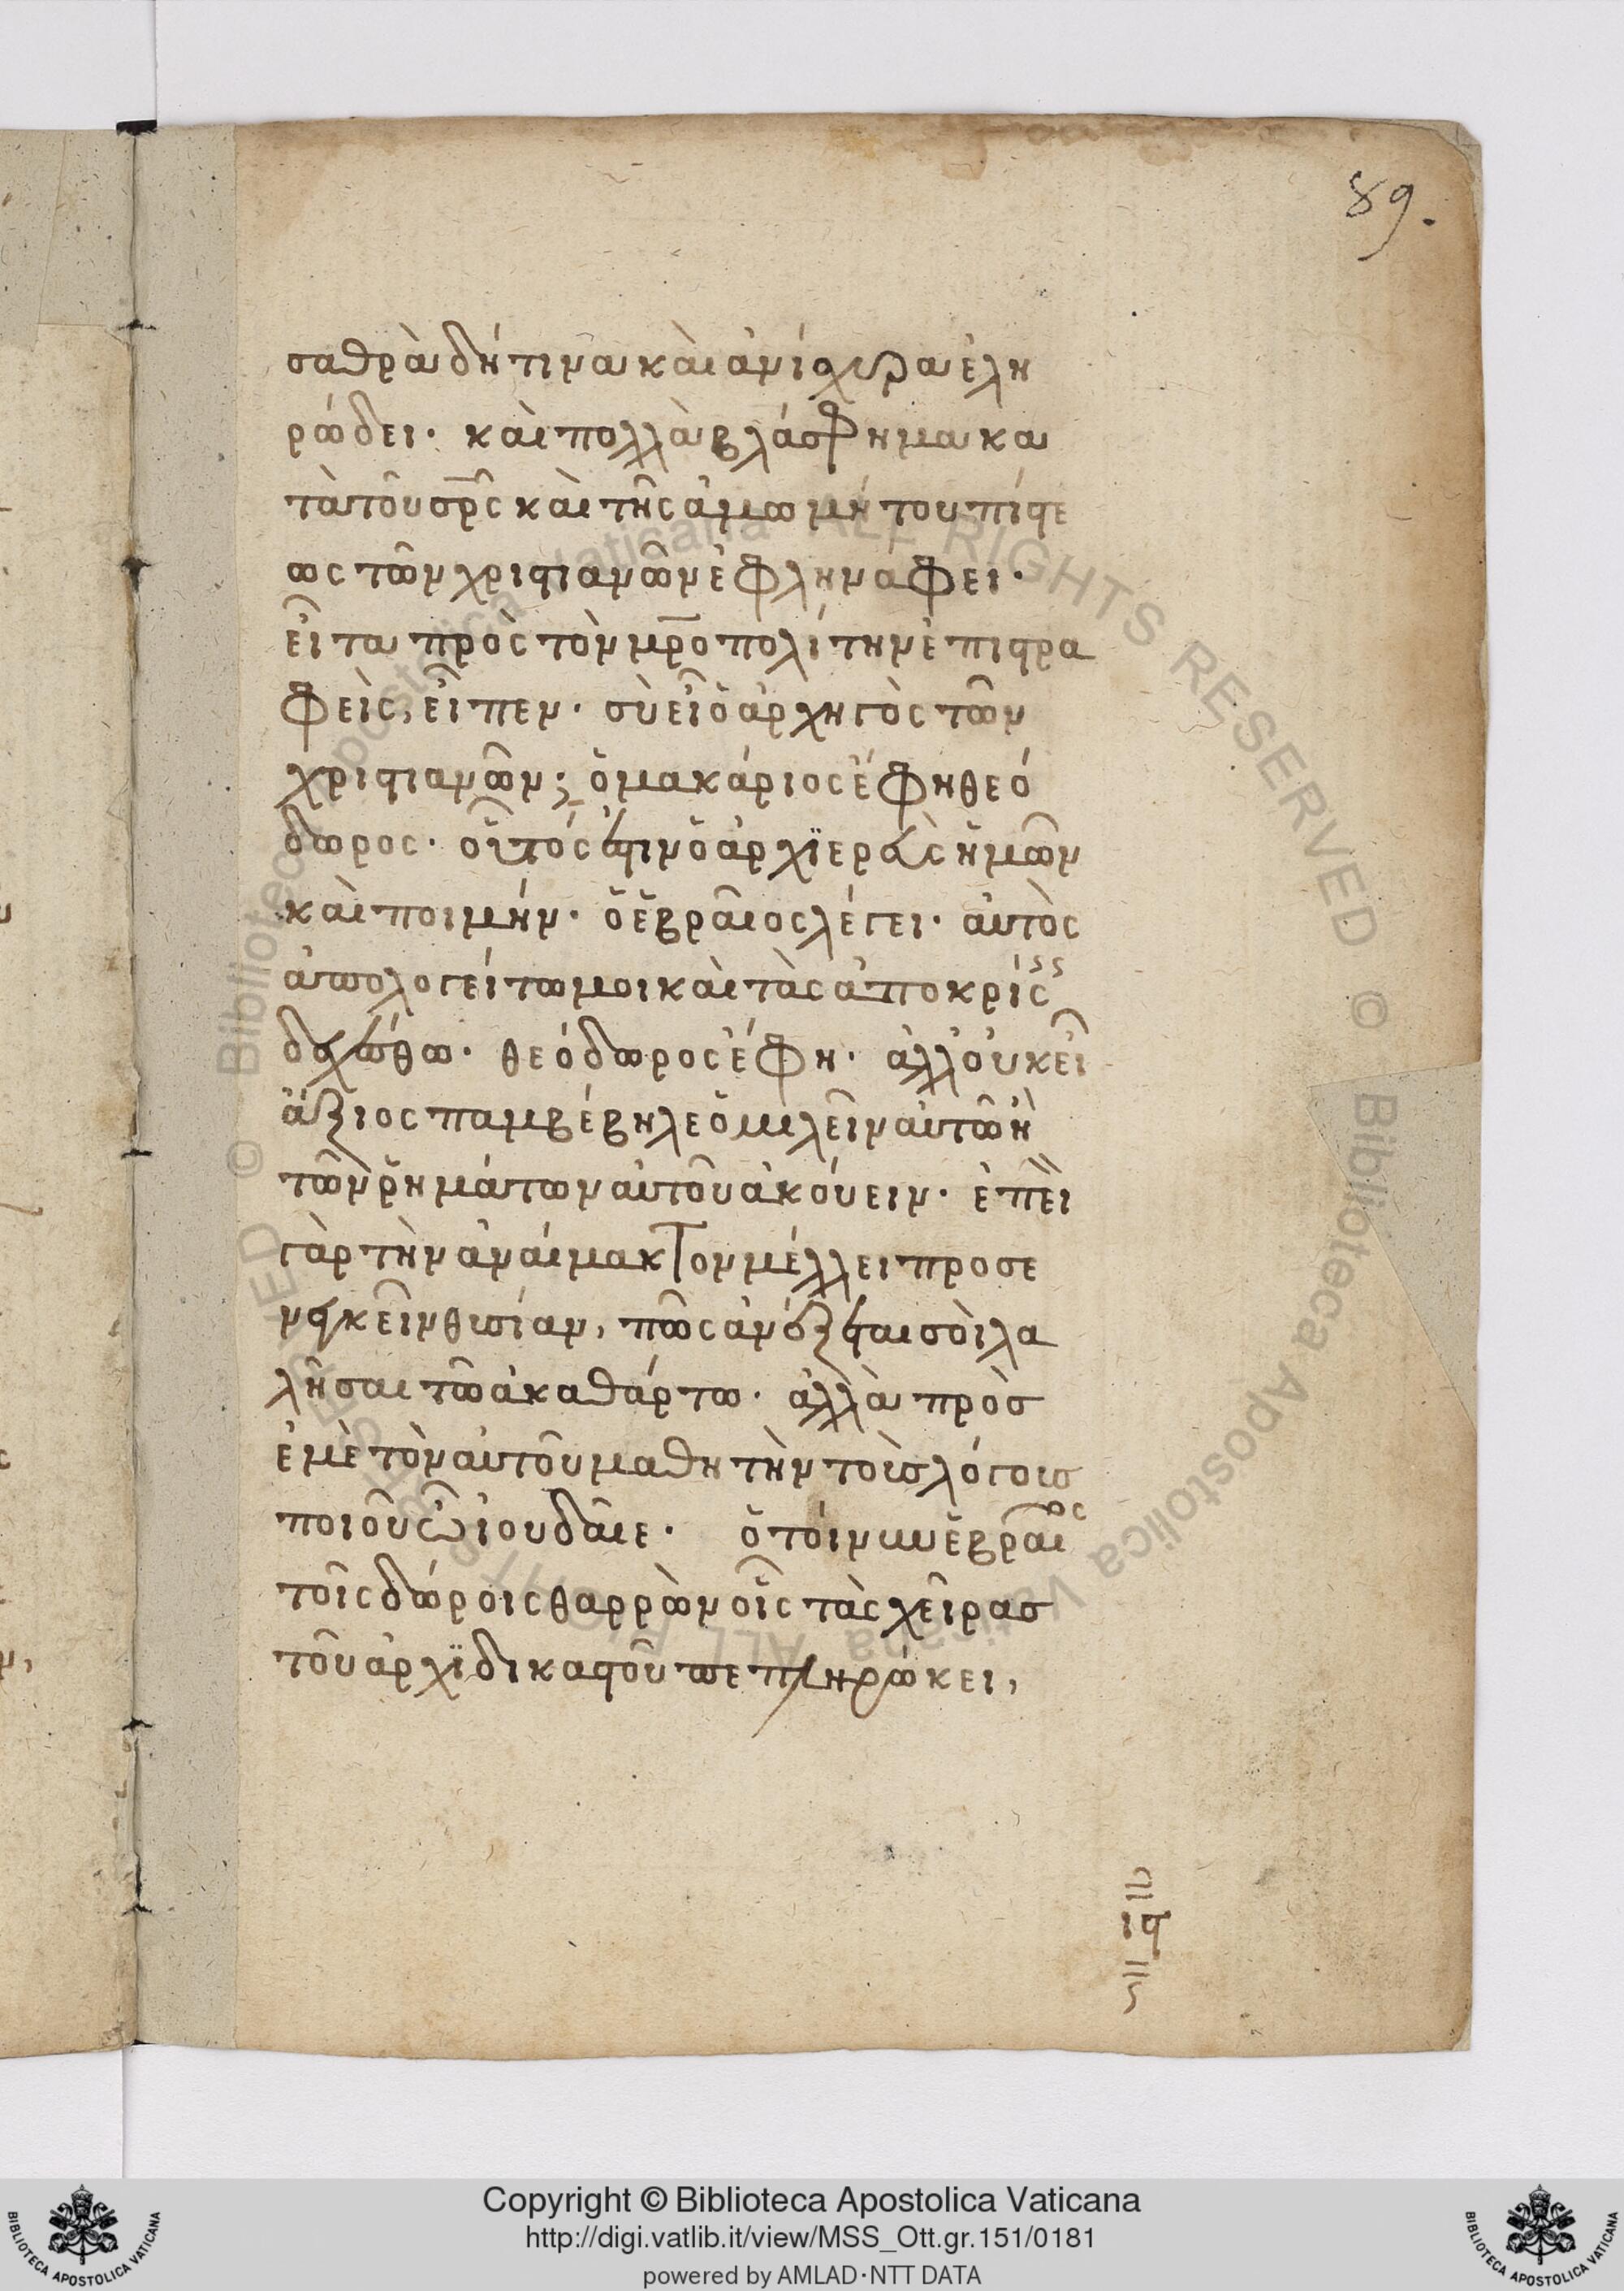 89.
σαθρὰ δή τινα καὶ ἀνίσχυρα ἐλη
ρώδει· καὶ πολλὰ βλάσφημα κα
τὰ τοῦ σρ̅ς καὶ τῆς ἀμωμήτου πίστε
ως τῶν χριστιανῶν ἐφληνάφει·
εἶτα πρὸς τὸν μρ̅οπολίτην ἐπιστρα
φεὶς, εἶπεν· σὺ εἶ ὁ ἀρχηγὸς τῶν
χριστιανῶν; ὁ μακάριος ἔφη θεό
δωρος· οὗτός ἐστιν ὁ ἀρχϊερεὺς ἡμῶν
καὶ ποιμήν· ὁ ἑβραῖος λέγει· αὐτὸς
ἀπολογείτω μοι καὶ τὰς ἀποκρίσεις
δεχέσθω· θεόδωρος ἔφη· ἀλλ' οὐκ εἶ
ἄξιος παμβέβηλε ὁμιλεῖν αὐτῶ ἢ
τῶν ῥημάτων αὐτοῦ ἀκούειν· ἐπεὶ
γὰρ τὴν ἀναίμακτον μέλλει προσε
νεγκεῖν θυσίαν, πῶς ἀνέξεται σοὶ λα
λῆσαι τῶ ἀκαθάρτω· ἀλλὰ πρὸς
ἐμὲ τὸν αὐτοῦ μαθητὴν τοὺς λόγους
ποιοῦ ὦ ἰουδαῖε· ὁ τοίνυν ἑβραῖος
τοῖς δώροις θαρρῶν οἷς τὰς χεῖρας
τοῦ ἀρχϊδικαστοῦ πεπληρώκει,
Copyright © Biblioteca Apostolica Vaticana
http://digi.vatlib.it/view/MSS_Ott.gr.151/0181
powered by AMLAD·NTT DATA
BIBLIOTECA APOSTOLICA VATICANA
BIBLIOTECA APOSTOLICA VATICANA